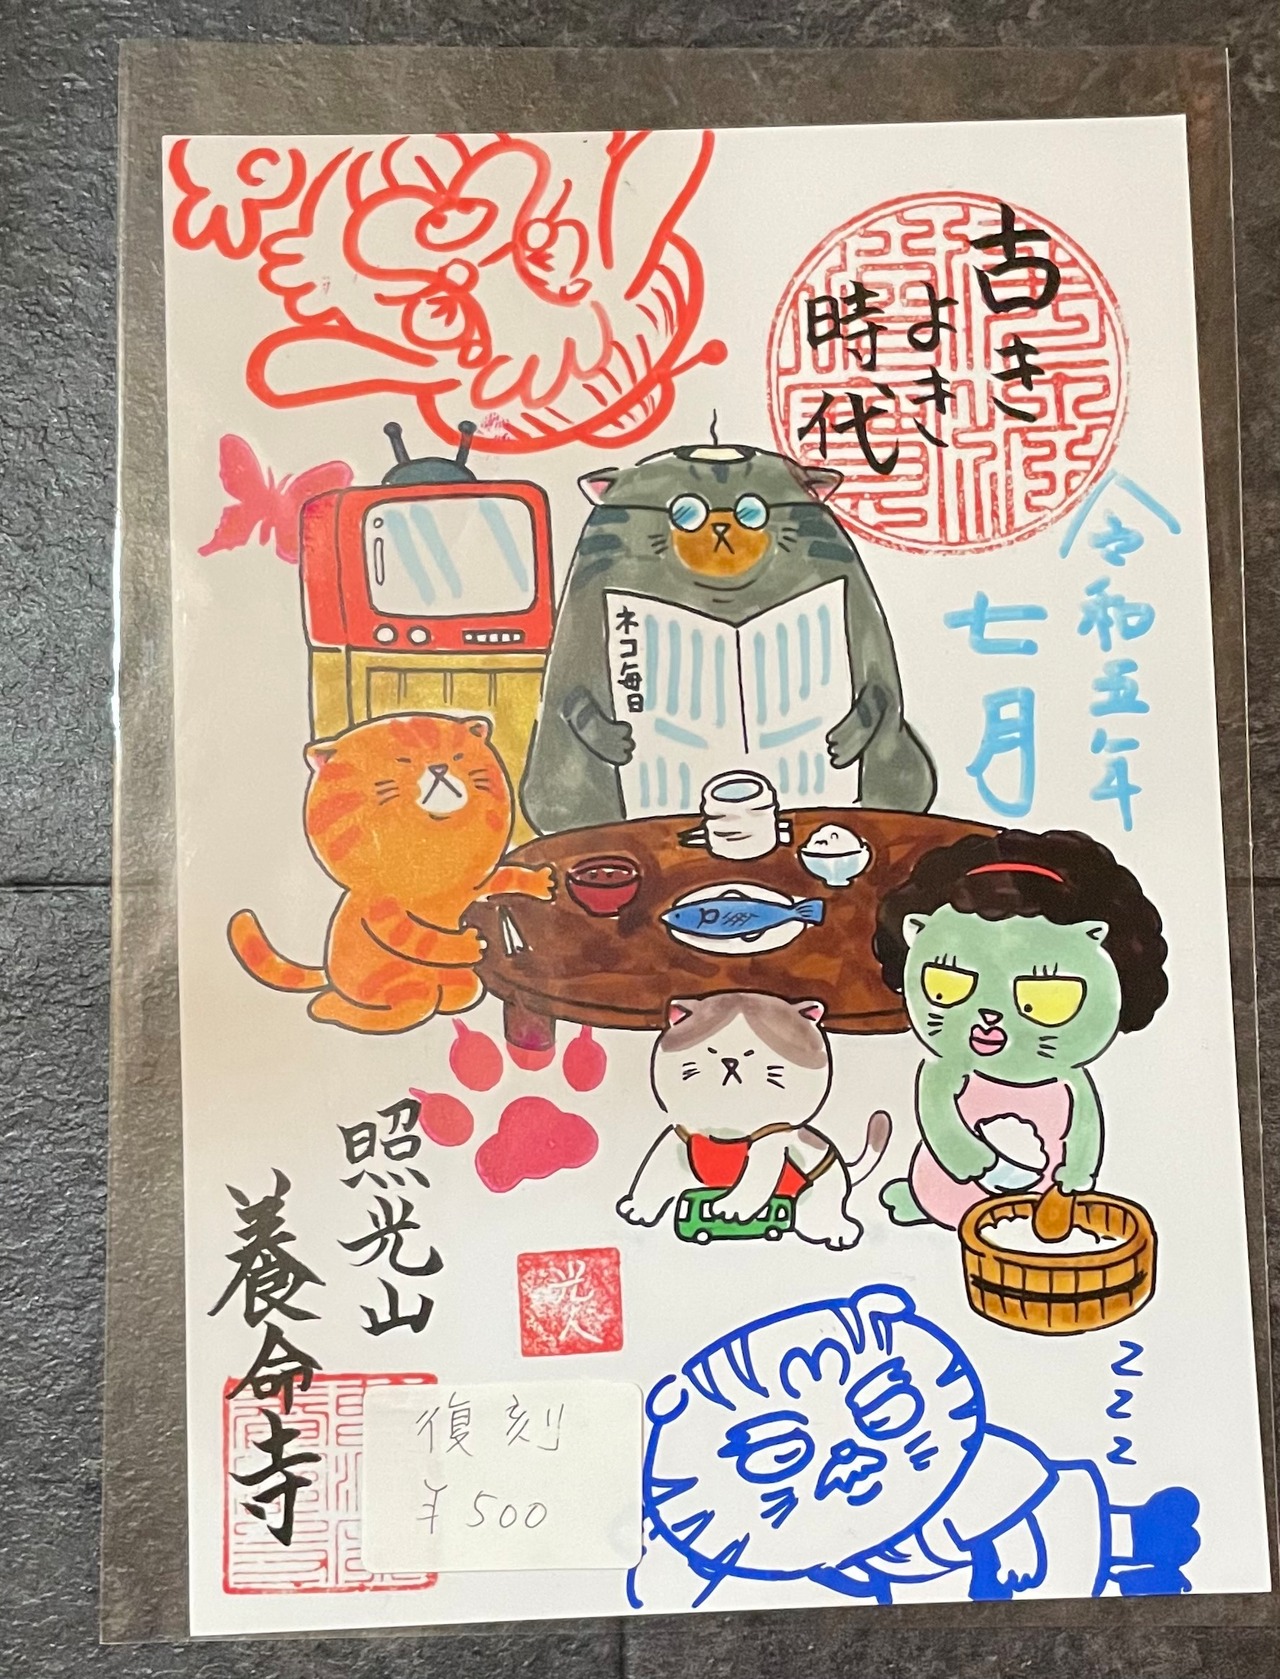 古き
よき
時代
令和五年
七月
ネコ毎日
照光山
養命寺
復刻
¥500
zzz